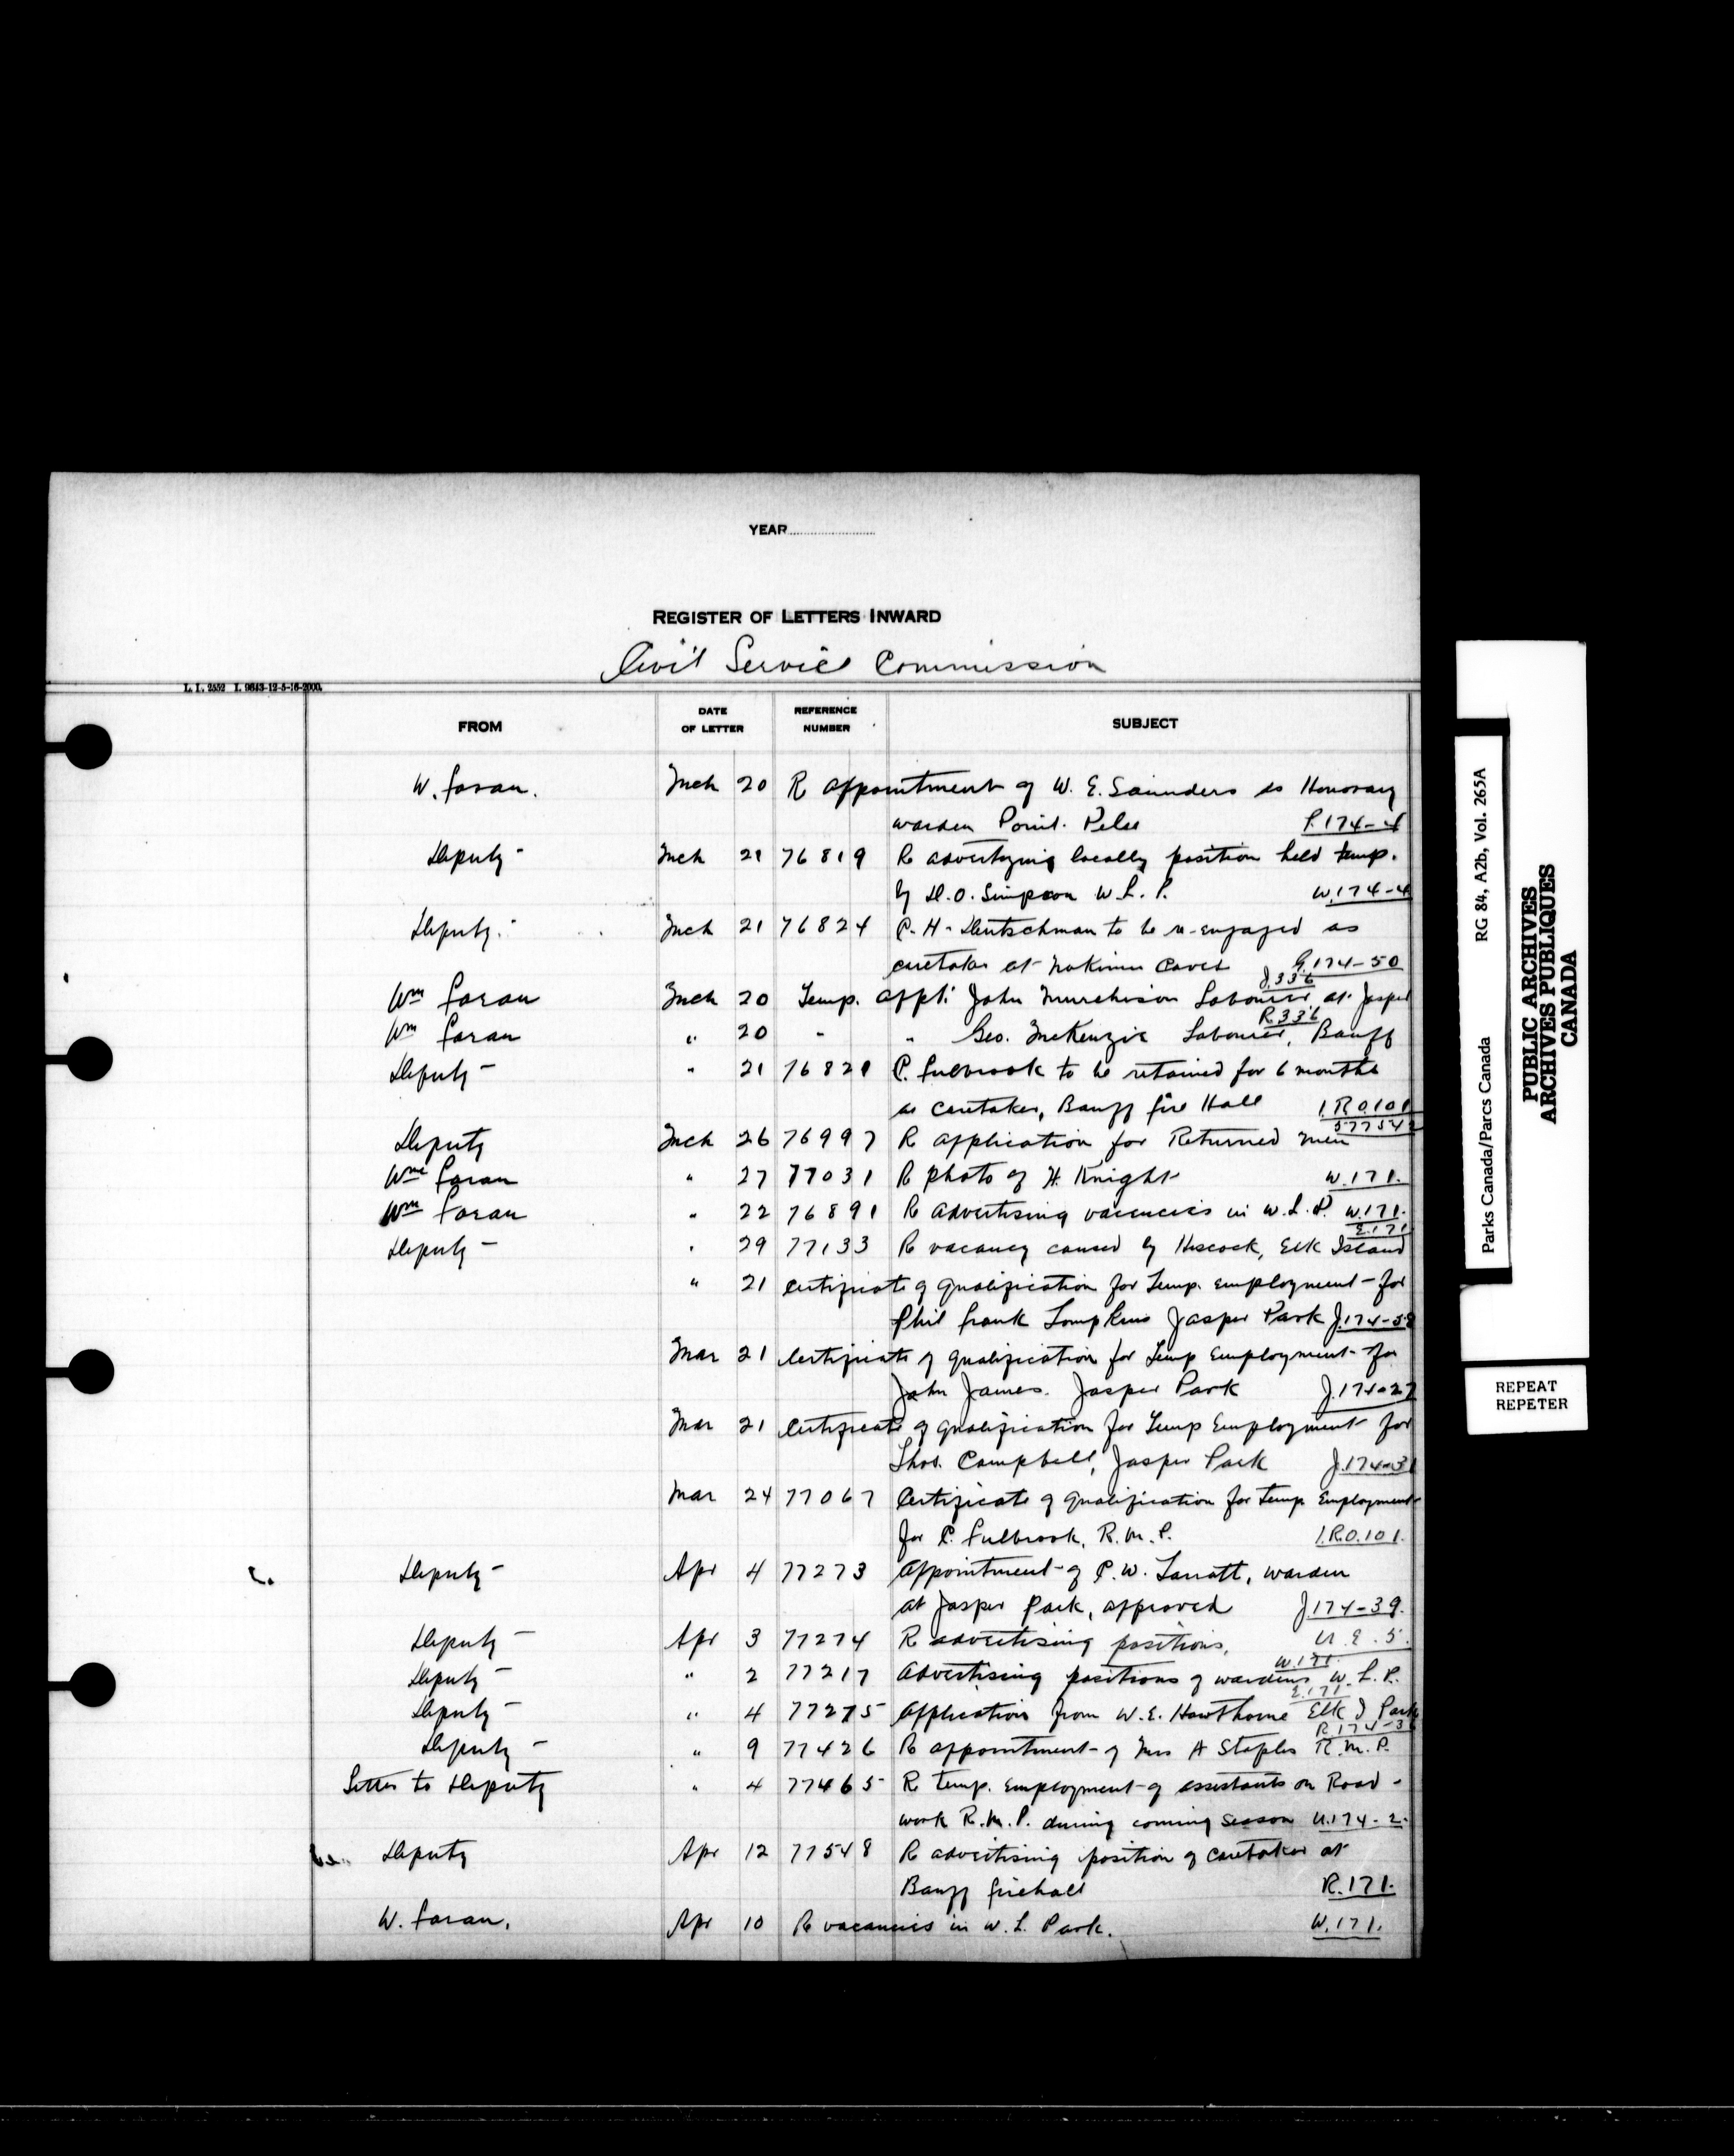 YEAR
REGISTER OF LETTERS INWARD
Civil Service Commission
L. I. 2552 I. 9643-12-5-16-2000.
FROM DATE OF LETTER REFERENCE NUMBER SUBJECT
W. Foran. Mch 20 R appointment of W. E. Saunders as Honorary
warden Point Pelee P.174-4
Deputy - Mch 21 76819 Re advertizing locally position held temp.
by D.O. Simpson W. L. P. W.174-4
Deputy. Mch 21 76824 C. H. Deutschman to be re-engaged as
caretaker at Nakimu Caves G.174-50
J.336
Wm Foran Mch 20 Temp. appt. John Murchison Labourer, at Jasper
R336
Wm Foran " 20 - " Geo. McKenzie Labourer, Banff
Deputy - " 21 76829 P. Fulbrook to be retained for 6 months
as caretaker, Banff fire Hall 1.R.0.101
577542
Deputy Mch 26 76997 R application for Returned men
Wm Foran " 27 77031 R photo of H. Knight W.171.
Wm Foran " 22 76891 R advertising vacancies in W.L.P. W.171.
E.171
Deputy - " 29 77133 R vacancy caused by Hiscock, Elk Island
" 21 Certificate of qualification for Temp. employment - for
Phil Frank Tompkins Jasper Park J.174-58
Mar 21 Certificate of qualification for Temp Employment - for
John James. Jasper Park J.174-27
Mar 21 Certificate of qualification for Temp Employment for
Thos. Campbell, Jasper Park J.174-31
Mar 24 77067 Certificate of qualification for Temp Employment
for P. Fulbrook, R.M.P. 1.R.0.101.
Deputy - Apr 4 77273 Appointment - of P.W. Tarratt, warden
at Jasper Park, approved J174-39.
Deputy - Apr 3 77274 R advertising positions, U.E.5.
W.171.
Deputy - " 2 77217 Advertising positions of wardens W.L.P.
E.171
Deputy - " 4 77275 Application from W.E. Hawthorne Elk I Park
R.174-3
Deputy - " 9 77426 R appointment - of Mrs A Staples R.M.P.
Letter to Deputy " 4 77465 R temp. employment - of assistants on Road -
work R.M.P. during coming season U.174-2.
Deputy Apr 12 77548 R advertising position of caretaker at
Banff firehall R.171.
W. Foran. Apr 10 R vacancies in W. L. Park. W.171.
Parks Canada/Parcs Canada RG 84, A2b, Vol. 265A
PUBLIC ARCHIVES
ARCHIVES PUBLIQUES
CANADA
REPEAT
REPETER